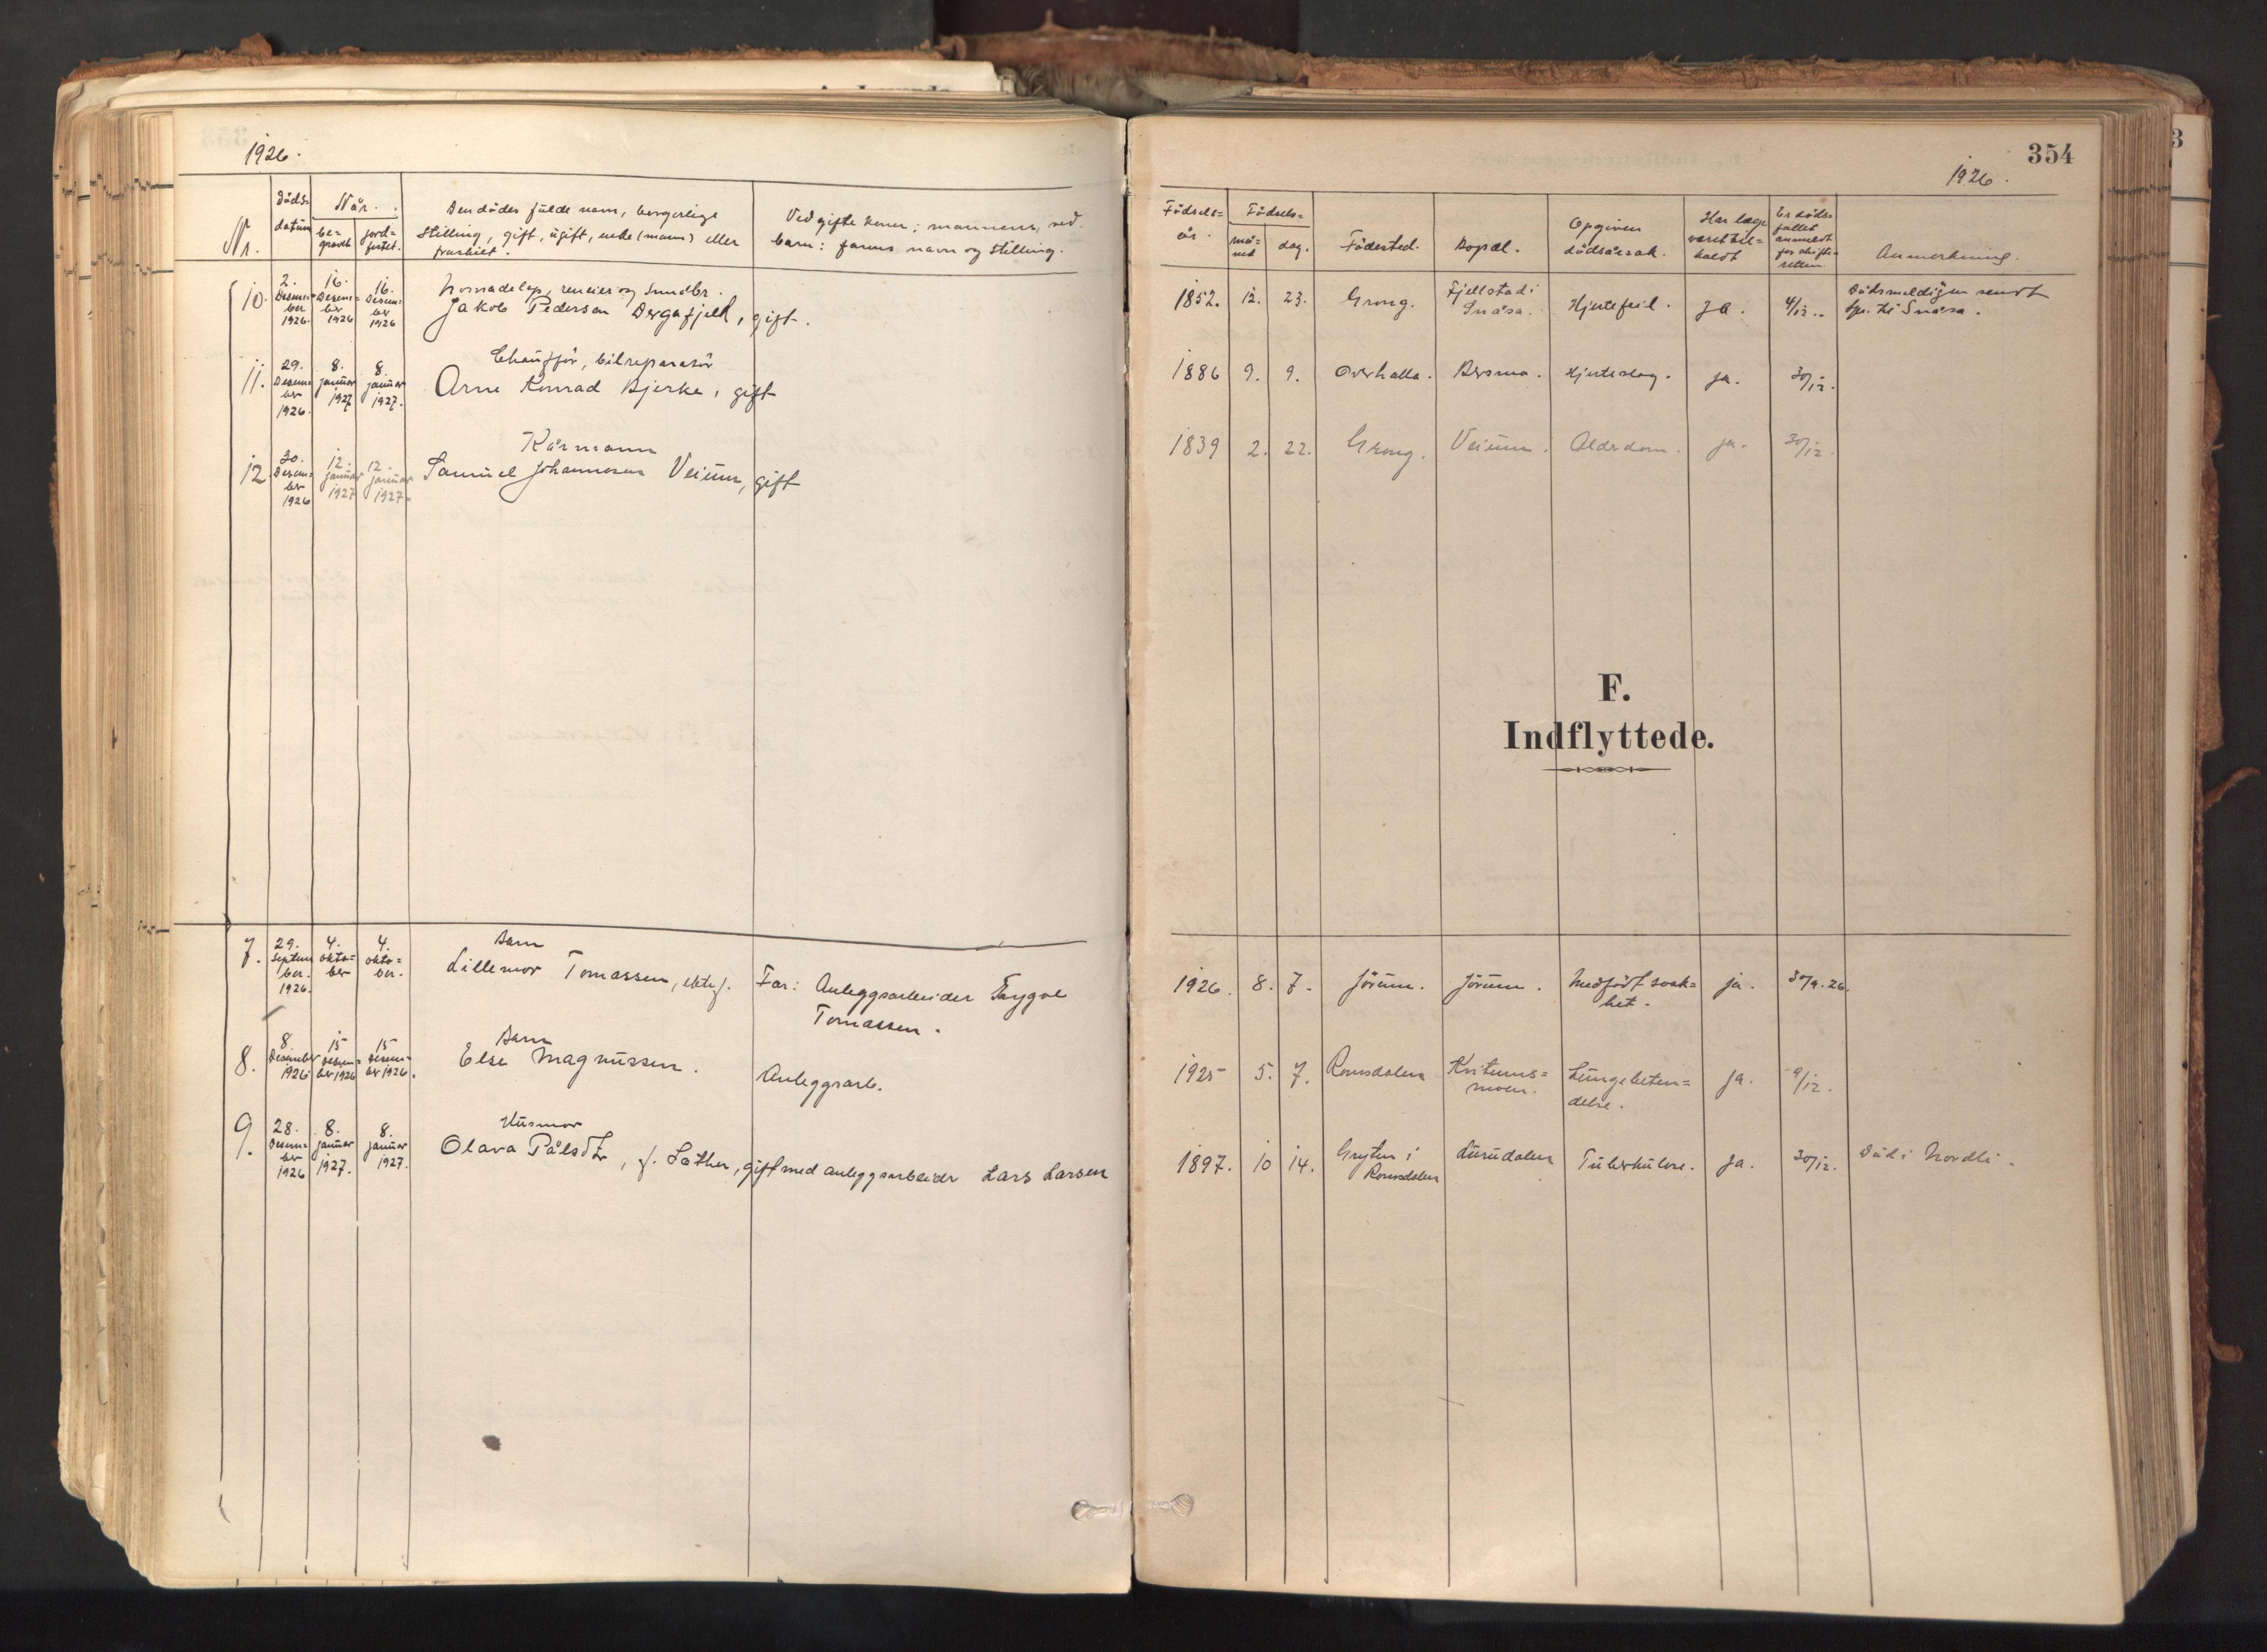 1926.
Nr.
Döds-
datum
Når.
be-
gravet
jord-
festet.
Den dödes fulde navn, borgerlige
stilling, gift, ugift, enke (mann) eller
fraskilt.
Ved gifte koner; mannens, ved
barn: farens navn og stilling.
10.
2.
Desem-
ber
1926.
16.
Desem-
ber
1926
16.
Desem-
ber
1926
Nomadelap, reneier og
Jakob Pedersen Bergafjell, gift.
11.
29.
Desem-
ber
1926.
8.
januar
1927
8.
januar
1927.
Chauffør, bilreparatör
Arne Konrad Bjerke, gift
12.
30.
Desem-
ber
1926
12.
januar
1927
12.
januar
1927.
Kårmann
Samuel Johannesen Veium, gift
7.
29.
Septem
ber.
1926.
4.
okto-
ber
4.
okto-
ber.
Barn
Lillemor Tomassen, ektef.
Far: Anleggsarbeider Trygve
Tomassen.
8.
8.
Desember
1926
15
Desem-
ber 1926
15
Desem-
ber 1926.
Barn
Else Magnussen.
Anleggsarb.
9.
28.
Desem-
ber
1926
8.
januar
1927.
8.
januar
1927.
Husmor
Olava Pålsdtr, f. Sæther, gift med anleggsarbeider Lars Larsen
354
1926.
Födsels-
år.
Födsels-
må-
ned
dag.
Födested.
Bopæl.
Opgiven
dödsårsak.
Har læge
været til-
kaldt
Er döds-
fallet
anmeldt
for skifte-
retten.
Anmerkning.
1852. 12. 23. Grong. Fjellstad i
Snåsa. Hjertefeil. Ja. 4/12. Dödsmeldigen sendt
spr. til Snåsa.
1886 9. 9. Overhalla. Bersmo. Hjerteslag. ja. 30/12.
1839 2. 22. Grong. Veium. Alderdom. ja. 30/12.
F.
Indflyttede.
1926. 8. 7. Jörum. Jörum. Medfödt svak-
het. ja. 30/9.26.
1925 5. 7. Romsdalen Kvitums-
moen. Lungebeten-
delse. ja. 9/12.
1897. 10 14. Grytten i
Romsdalen Lurudalen Tuberkulose. ja. 30/12. Död i Nordli.